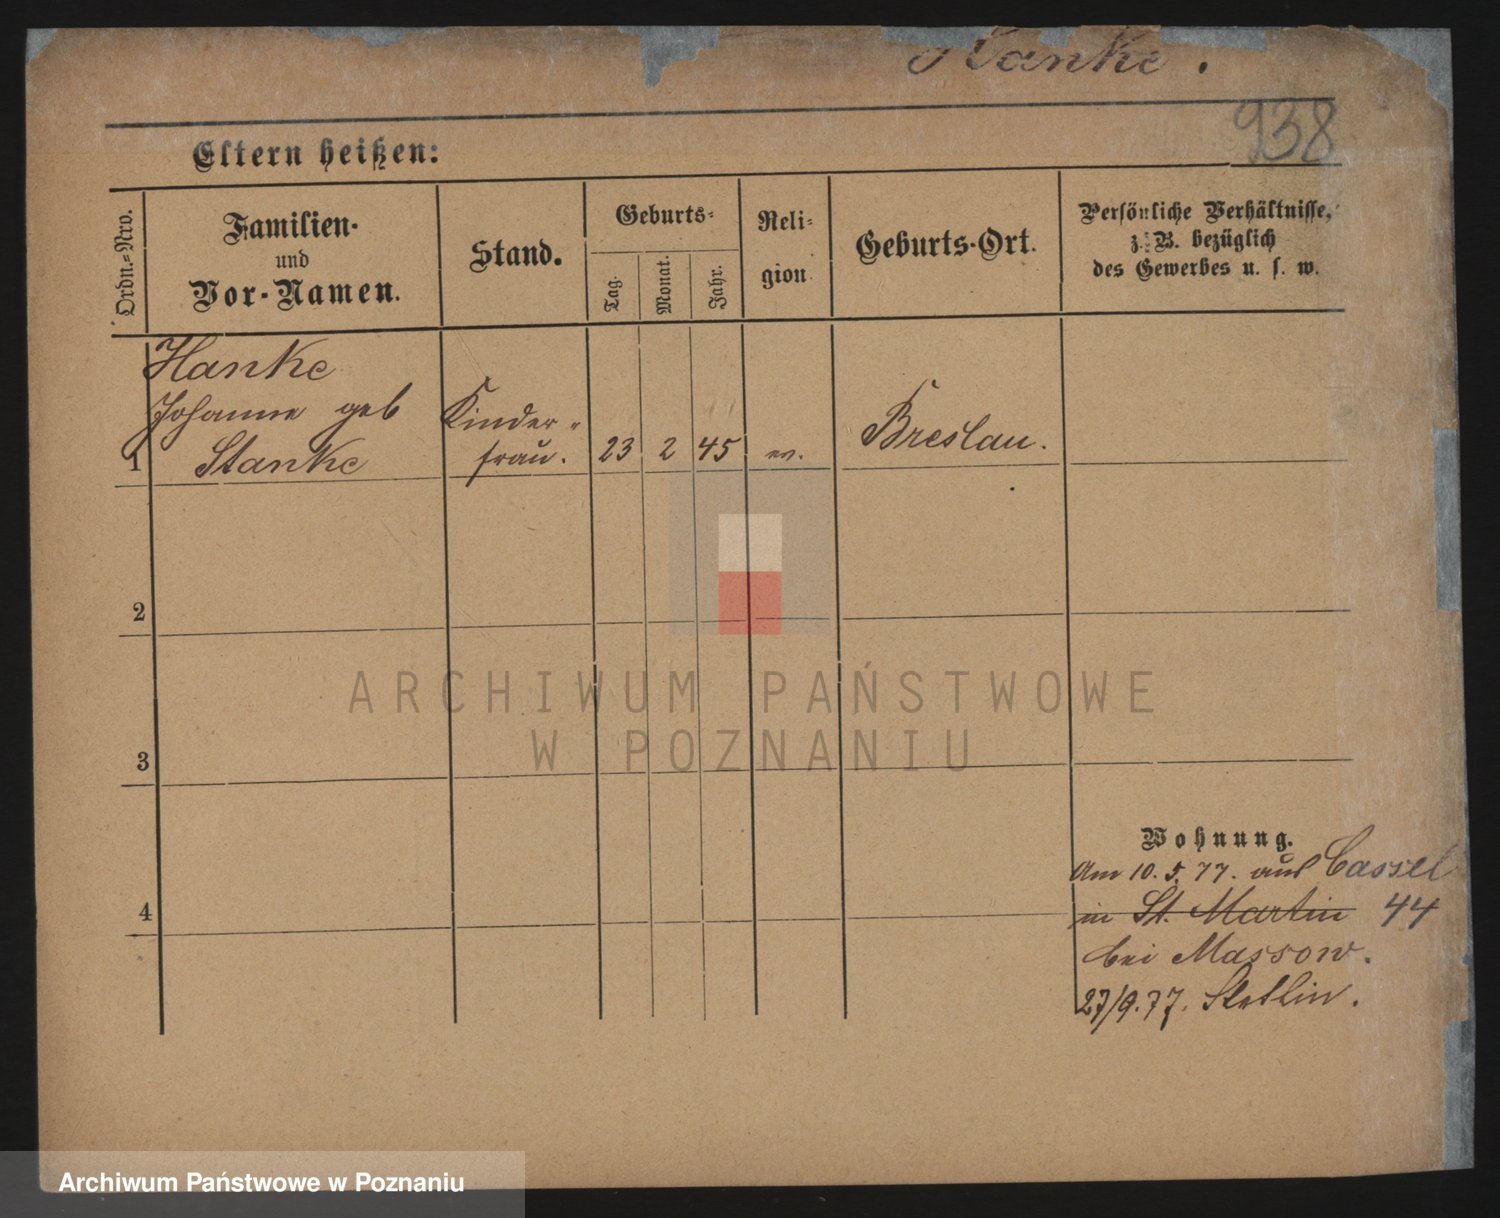 Hanke.
938
Eltern heißen:
Ordn.=Nro.
Familien-
und
Vor-Namen.
Stand.
Geburts=
Tag.
Monat.
Jahr.
Reli=
gion.
Geburts-Ort.
Persönliche Verhältnisse,
z. B. bezüglich
des Gewerbes u. s. w.
Hanke
Johanne geb
Stanke
1
Kinder-
frau.
23
2
45
ev.
Breslau.
2
3
4
Wohnung.
Am 10. 5. 77. aus Cassel
in St. Martin 44
bei Massow.
27/9. 77. Stettin.
ARCHIWUM PAŃSTWOWE
W POZNANIU
Archiwum Państwowe w Poznaniu